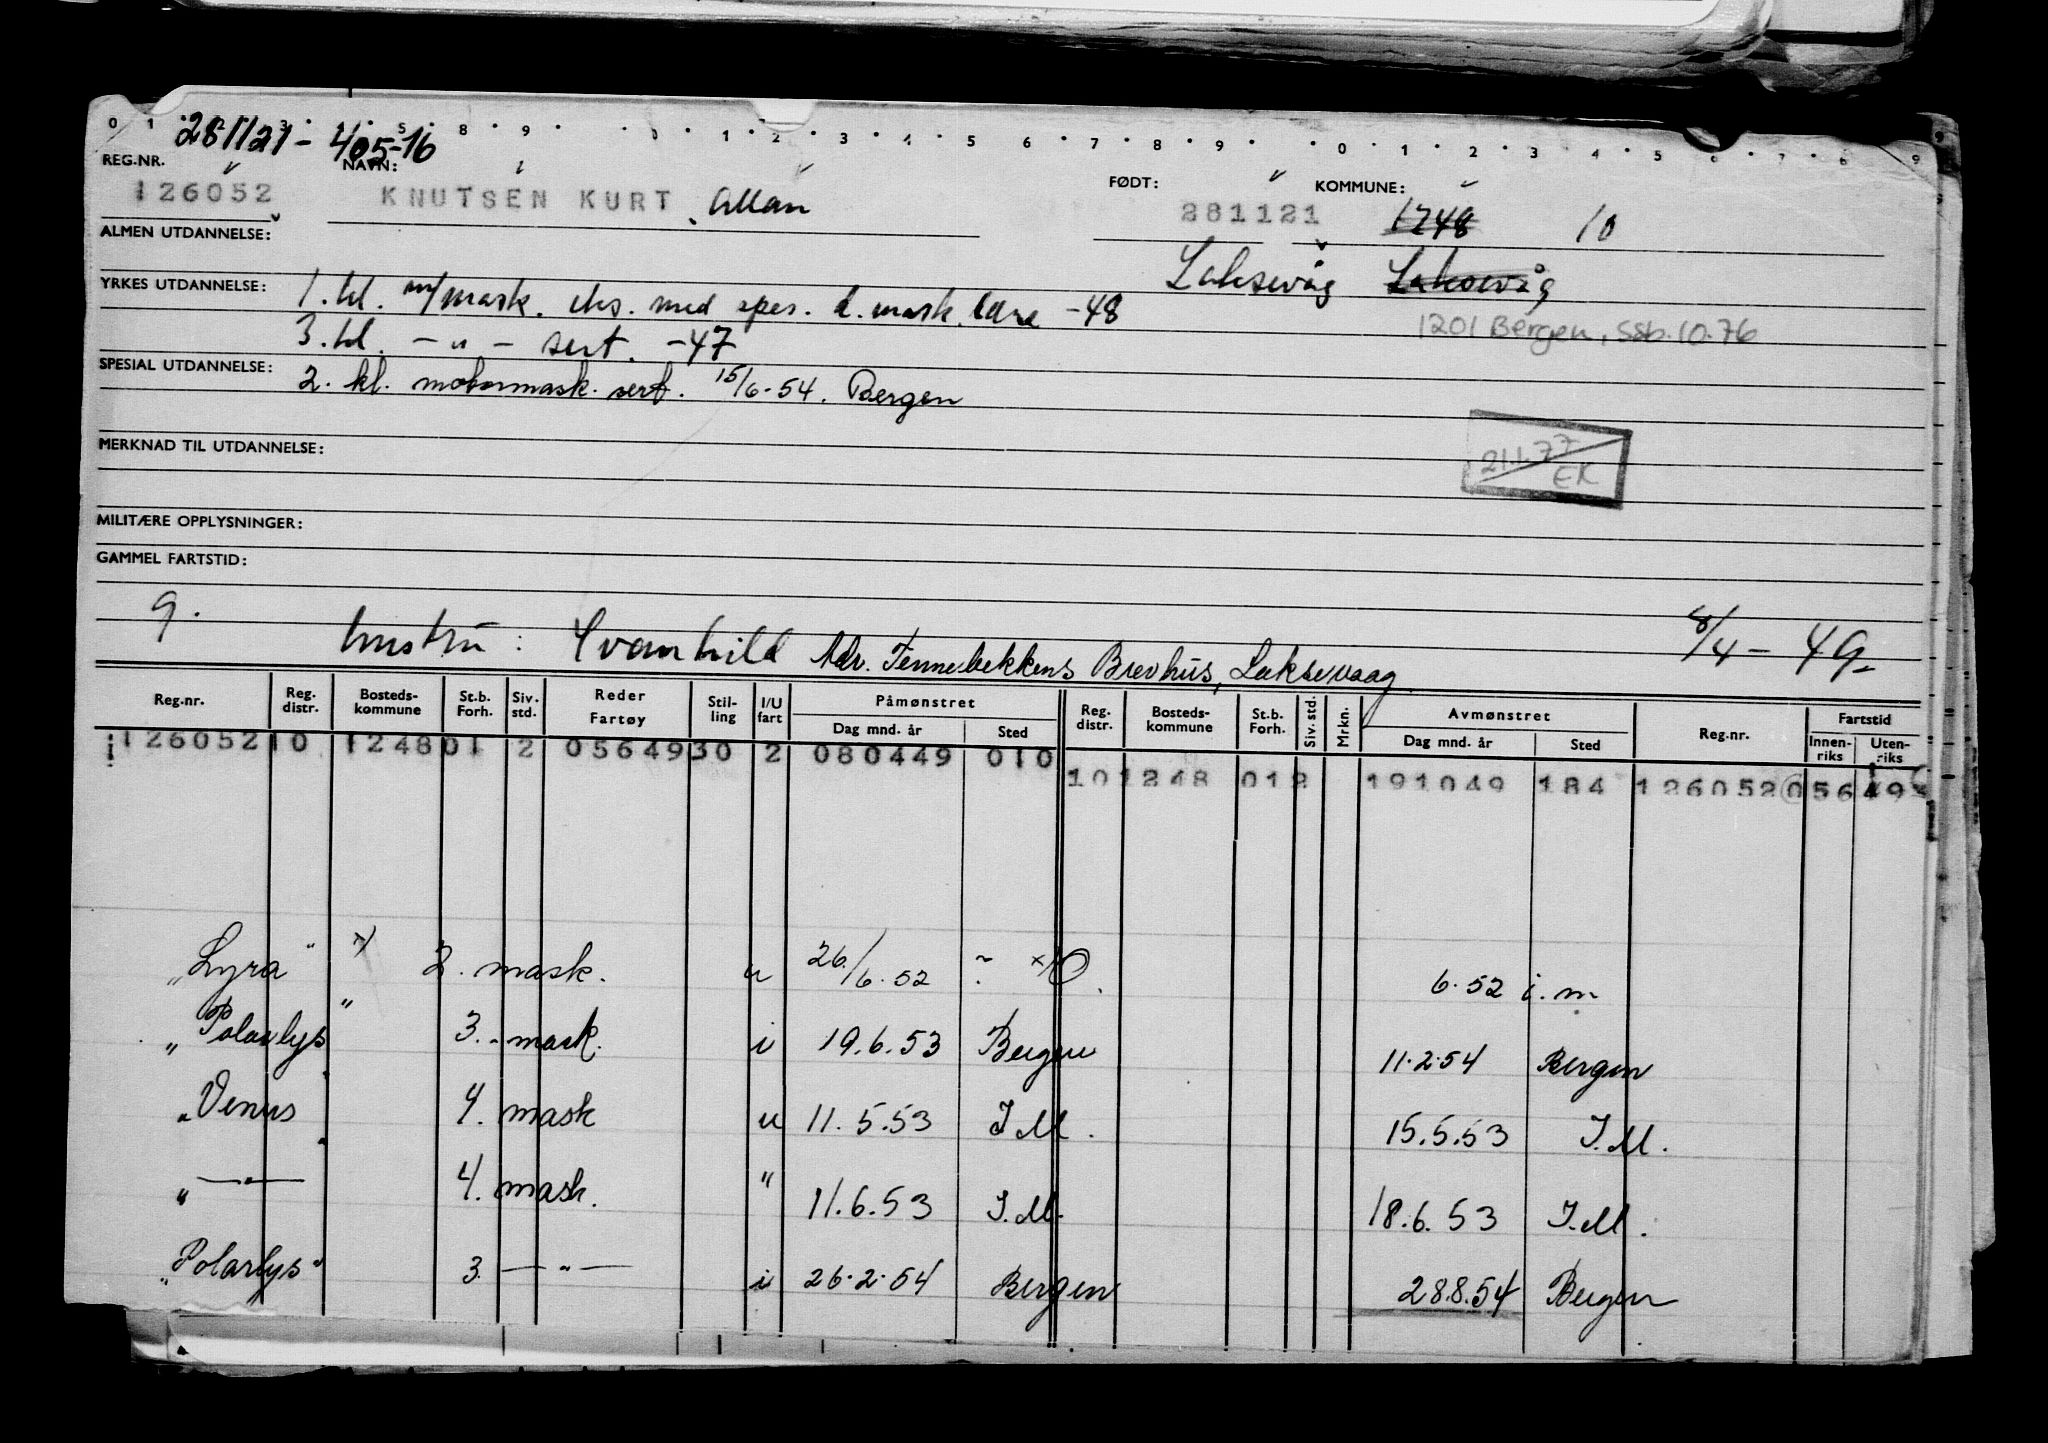 281121-40516
REG.NR. NAVN: FØDT: KOMMUNE:
126052 KNUTSEN KURT Allan 281121 1248 10
ALMEN UTDANNELSE:
Laksevåg Laksevåg
YRKES UTDANNELSE: 1. kl. m/mask. eks. med spes. e. mask. lære -48
1201 Bergen, ssb. 10.76
3. kl. -"- sert. -47
SPESIAL UTDANNELSE: 2. kl. motormask. sert. 15/6-54. Bergen
MERKNAD TIL UTDANNELSE:
21.1.77
EK
MILITÆRE OPPLYSNINGER:
GAMMEL FARTSTID:
g. hustru: Svanhild Adr. Tennebekkens Brevhus, Laksevaag 8/4-49
Reg.nr. Reg. distr. Bosteds-kommune St.b. Forh. Siv. std. Reder Fartøy Stil-ling I/U fart Påmønstret Dag mnd. år Sted Reg. distr. Bosteds-kommune St.b. Forh. Siv. std. Mrkn. Avmønstret Dag mnd. år Sted Reg.nr. Fartstid Innen-riks Uten-riks
126052 10 1248 01 2 056493 0 2 080449 010
10 1248 01 2 191049 184 126052 056 49
"Lyra" x) 2. mask. u 26/6.52 x) O. 6.52 i.m
"Polarlys" 3. mask. i 19.6.53 Bergen 11.2.54 Bergen
"Venus" 4. mask u 11.5.53 I.M. 15.5.53 I.M.
" —"— 4. mask. " 11.6.53 I.M. 18.6.53 I.M.
"Polarlys" 3. —"— i 26.2.54 Bergen 28.8.54 Bergen